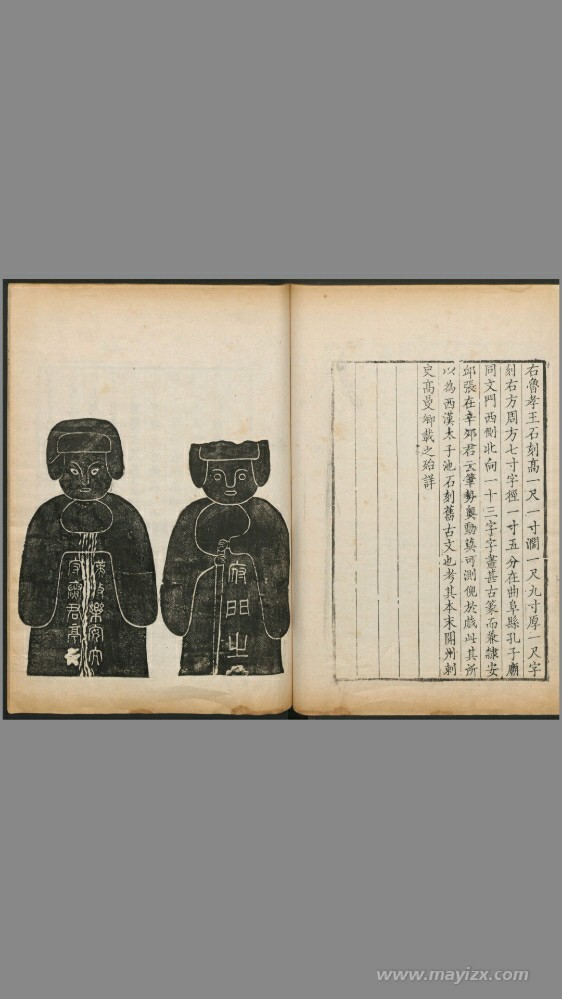 右魯孝王石刻高一尺一寸濶一尺九寸厚一尺字
刻右方周方七寸字徑一寸五分在曲阜縣孔子廟
同文門西側北向一十三字字畫甚古篆而兼隷安
邱張在辛郊君云筆勢奧勁莫可測倪於戲此其所
以為西漢太子池石刻舊古文也考其本末開州刺
史高曼卿載之殆詳
府門之
漢故樂安太
守麃君亭
www.mayizx.com